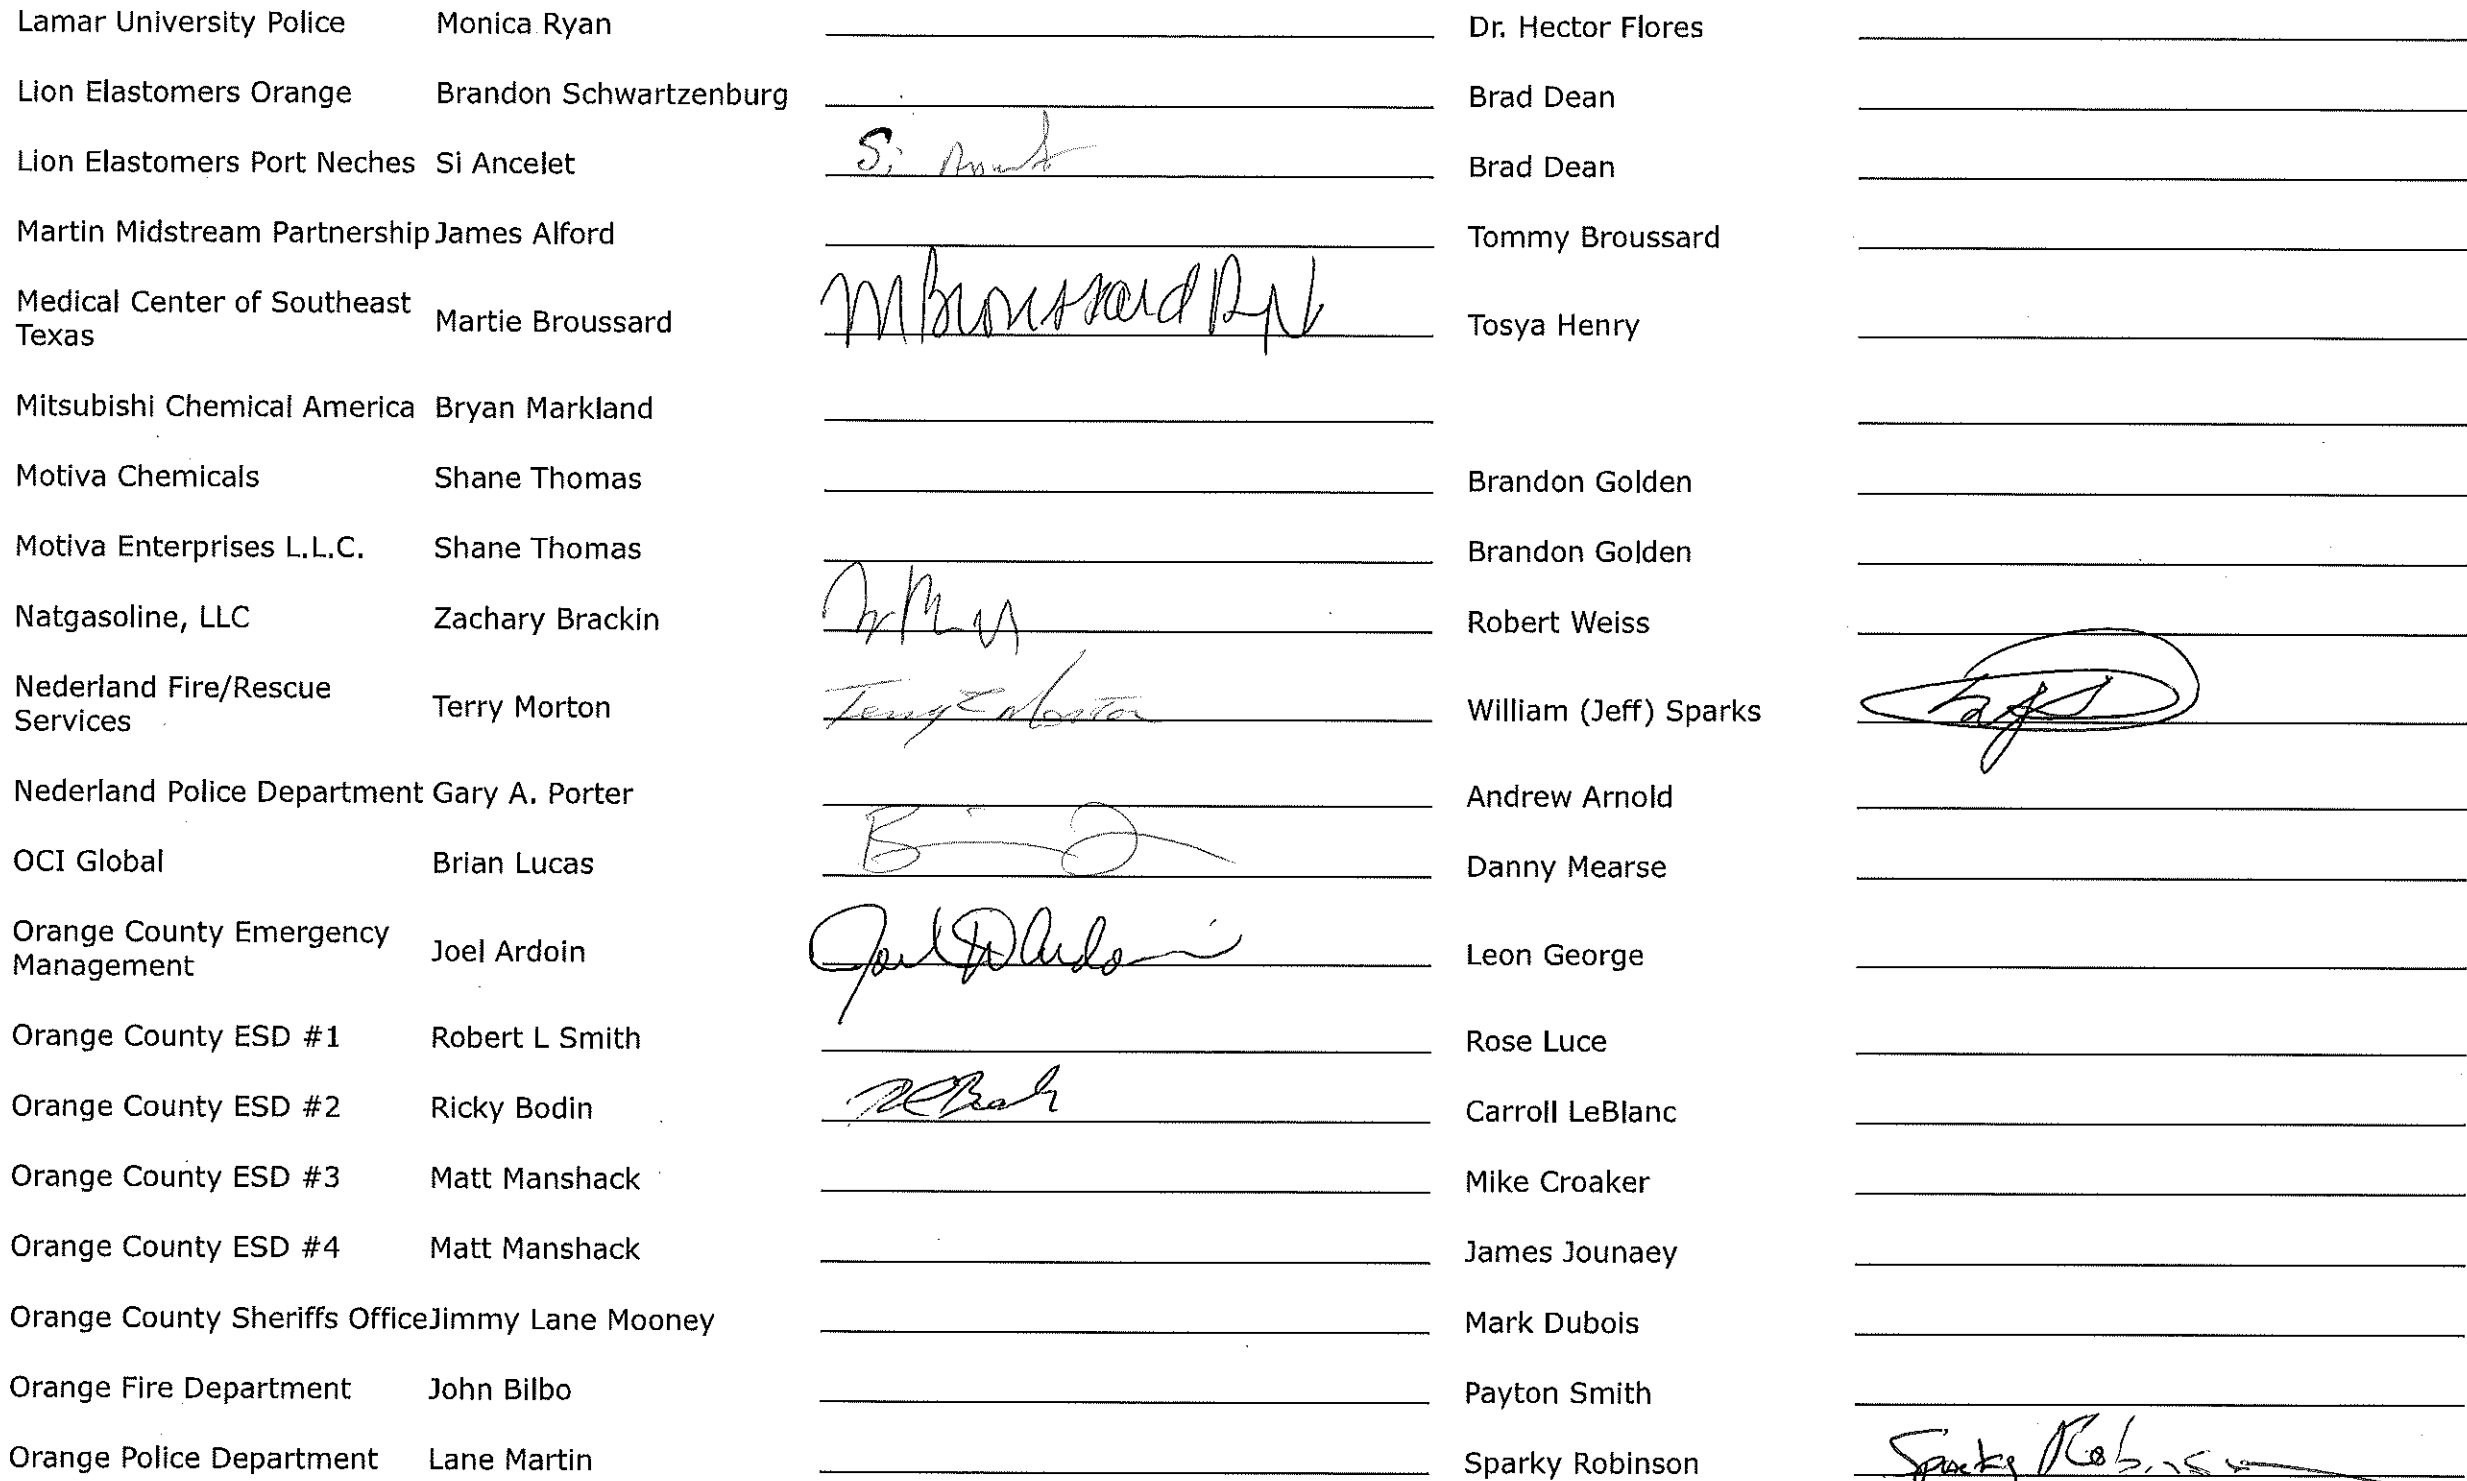 Lamar University Police Monica Ryan Dr. Hector Flores
Lion Elastomers Orange Brandon Schwartzenburg Brad Dean
Lion Elastomers Port Neches Si Ancelet Si Brad Dean
Martin Midstream Partnership James Alford Tommy Broussard
Medical Center of Southeast
Texas Martie Broussard MBroussard RN Tosya Henry
Mitsubishi Chemical America Bryan Markland
Motiva Chemicals Shane Thomas Brandon Golden
Motiva Enterprises L.L.C. Shane Thomas Brandon Golden
Natgasoline, LLC Zachary Brackin Robert Weiss
Nederland Fire/Rescue
Services Terry Morton Terry Morton William (Jeff) Sparks
Nederland Police Department Gary A. Porter Andrew Arnold
OCI Global Brian Lucas Danny Mearse
Orange County Emergency
Management Joel Ardoin Joel Ardoin Leon George
Orange County ESD #1 Robert L Smith Rose Luce
Orange County ESD #2 Ricky Bodin Carroll LeBlanc
Orange County ESD #3 Matt Manshack Mike Croaker
Orange County ESD #4 Matt Manshack James Jounaey
Orange County Sheriffs Office Jimmy Lane Mooney Mark Dubois
Orange Fire Department John Bilbo Payton Smith
Orange Police Department Lane Martin Sparky Robinson Sparky Robinson